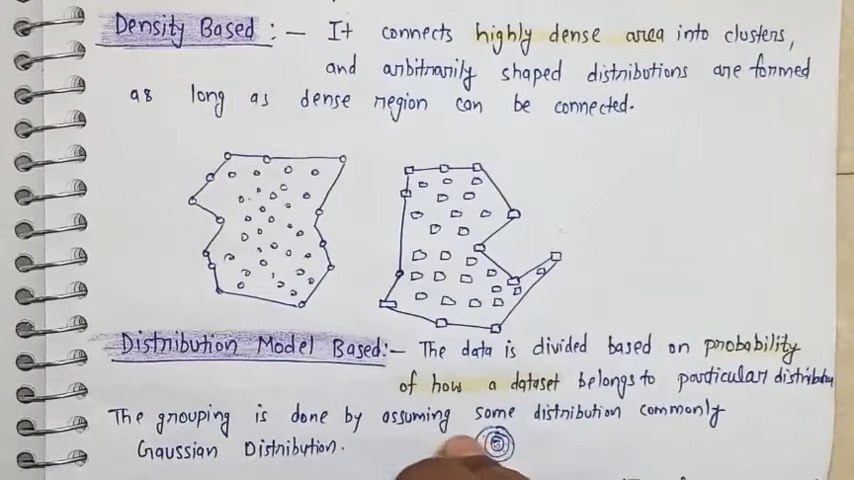 Density Based :- It connects highly dense area into clusters,
and arbitrarily shaped distributions are formed
as long as dense region can be connected.
Distribution Model Based:- The data is divided based on probability
of how a dataset belongs to particular distribution
The grouping is done by assuming some distribution commonly
Gaussian Distribution.